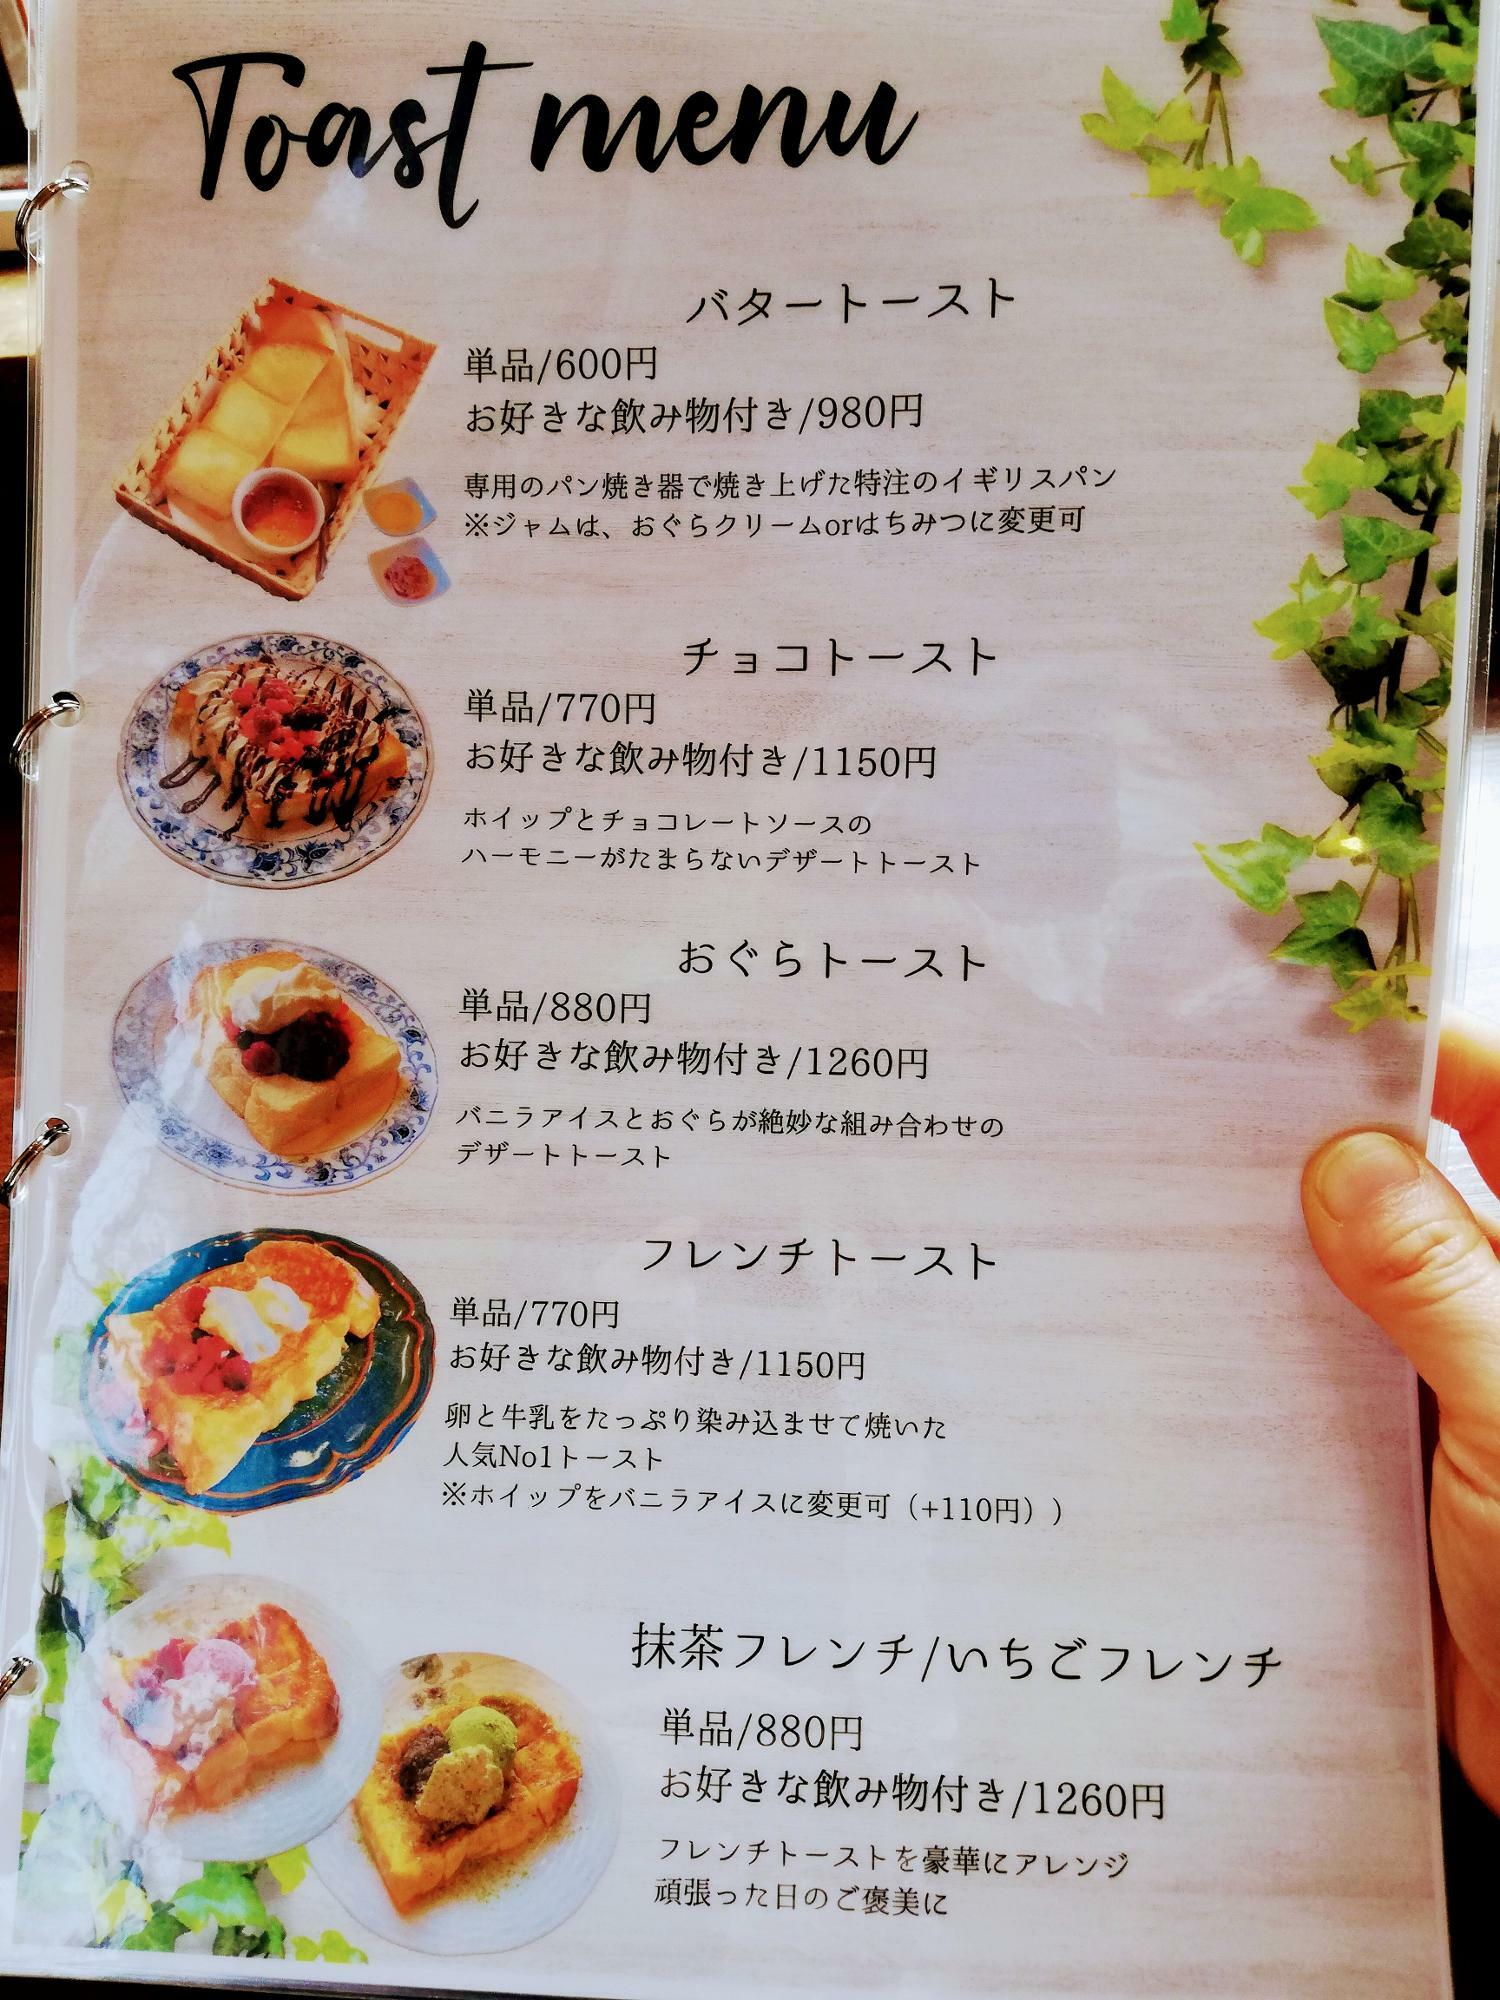 Toast menu
バタートースト
単品/600円
お好きな飲み物付き/980円
専用のパン焼き器で焼き上げた特注のイギリスパン
※ジャムは、おぐらクリームorはちみつに変更可
チョコトースト
単品/770円
お好きな飲み物付き/1150円
ホイップとチョコレートソースの
ハーモニーがたまらないデザートトースト
おぐらトースト
単品/880円
お好きな飲み物付き/1260円
バニラアイスとおぐらが絶妙な組み合わせの
デザートトースト
フレンチトースト
単品/770円
お好きな飲み物付き/1150円
卵と牛乳をたっぷり染み込ませて焼いた
人気No1トースト
※ホイップをバニラアイスに変更可（+110円））
抹茶フレンチ/いちごフレンチ
単品/880円
お好きな飲み物付き/1260円
フレンチトーストを豪華にアレンジ
頑張った日のご褒美に